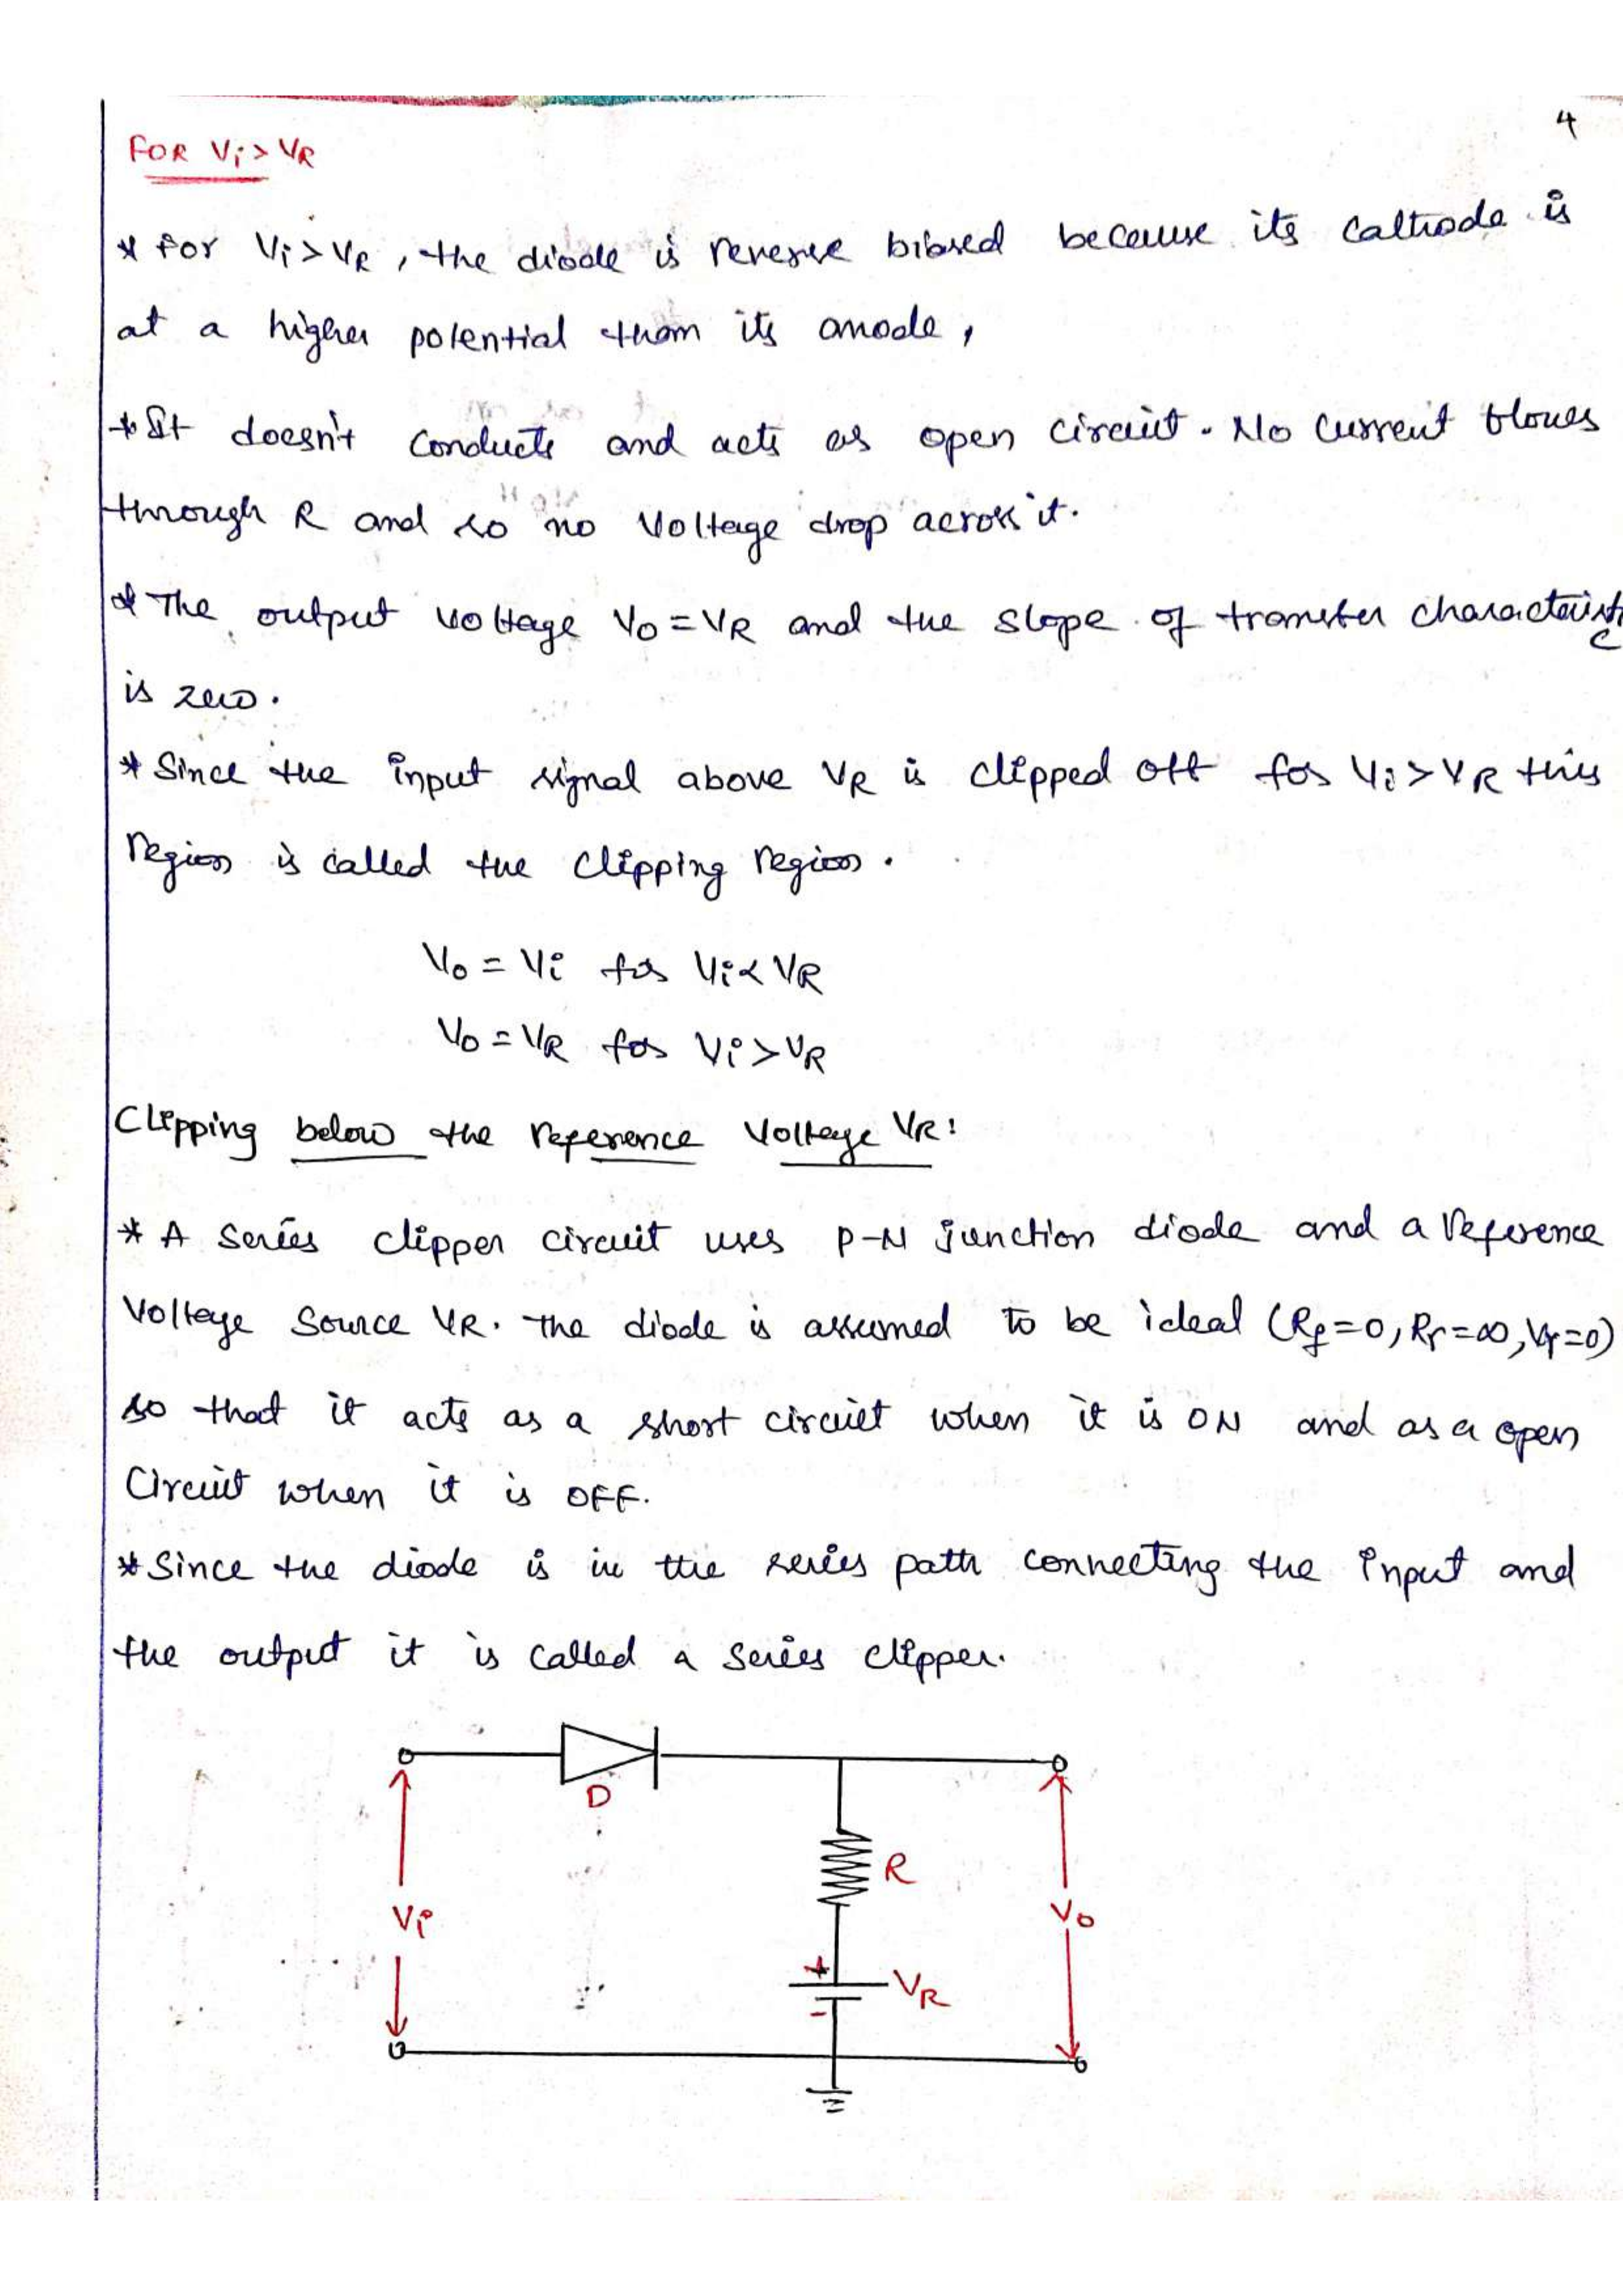 4
FOR Vi > VR
* for Vi > VR, the diode is reverse biased because its cathode is
at a higher potential than its anode,
* It doesn't conducts and acts as open circuit. No current flows
through R and so no voltage drop across it.
* The output voltage Vo = VR and the slope of transfer characteristic
is zero.
* Since the input signal above VR is clipped off for Vi > VR this
region is called the clipping region.
Vo = Vi for Vi < VR
Vo = VR for Vi > VR
Clipping below the reference voltage VR:
* A series clipper circuit uses P-N junction diode and a reference
voltage source VR. The diode is assumed to be ideal (Rf=0, Rr=∞, Vγ=0)
so that it acts as a short circuit when it is ON and as a open
circuit when it is OFF.
* Since the diode is in the series path connecting the input and
the output it is called a series clipper.
D
R
Vi
Vo
+
VR
-